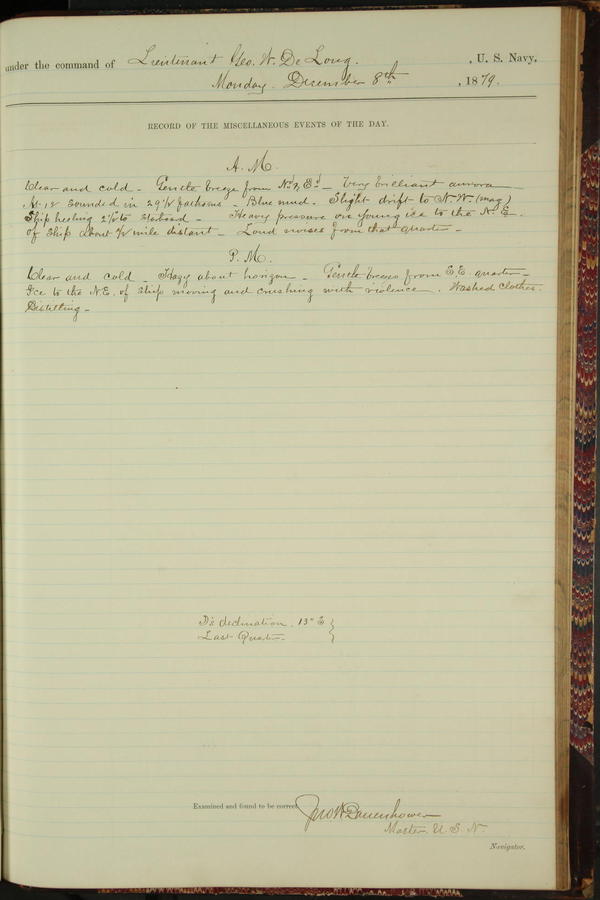 under the command of Lieutenant Geo. W. De Long. , U. S. Navy,
Monday. December 8th , 1879.
RECORD OF THE MISCELLANEOUS EVENTS OF THE DAY.
A. M.
Clear and cold - Gentle breeze from Nd & Ed - Very brilliant aurora
At 12 sounded in 29 1/2 fathoms - Blue mud. Slight drift to N. W. (mag)
Ship heeling 2 1/2° to starboard - Heavy pressure on young ice to the N. E.
of ship about 1/2 mile distant - Loud noises from that quarter -
P. M.
Clear and cold - Hazy about horizon - Gentle breeze from S. E. quarter -
Ice to the N. E. of ship moving and crushing with violence. Washed clothes.
Distilling -
declination. 13° E
Last Quarter -
Examined and found to be correct,
Jno W Danenhower
Master. U. S. N.
Navigator.